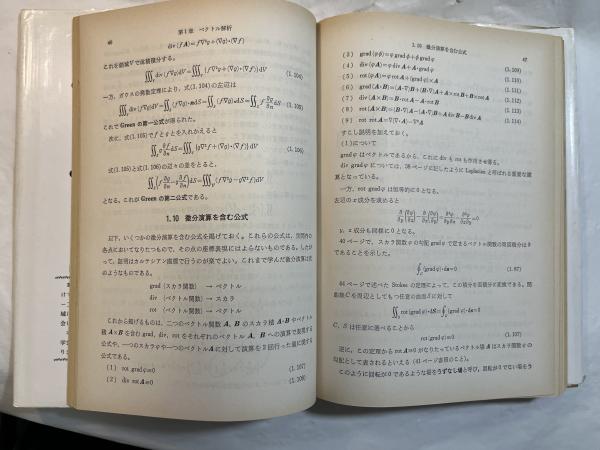 46 第1章 ベクトル解析
div (fA)=f∇²g+(∇g)・(∇f)
これを領域Vで体積積分する。
∭_V div (f∇g)dV=∭_V {f∇²g+(∇g)・(∇f)}dV (1.104)
一方，ガウスの発散定理により，式(1.104)の左辺は
∭_V div (f∇g)dV=∬_S (f∇g)・ndS=∬_S (f∇g)・dS=∬_S f ∂g/∂n dS (1.105)
これで Green の第一公式が得られた。
次に，式(1.105)でfとgとを入れかえると
∬_S g ∂f/∂n dS=∭_V {g∇²f+(∇g)・(∇f)}dV (1.106)
式(1.105)と式(1.106)の辺々の差をとると，
∬_S {f ∂g/∂n−g ∂f/∂n}dS=∭_V (f∇²g−g∇²f)dV
となる。これが Green の第二公式である。
1.10 微分演算を含む公式
以下，いくつかの微分演算を含む公式を掲げておく。これらの公式は，空間内の
各点においてなりたつもので，その点の座標表現にはよらないものである。したが
って，証明はカルテシアン座標で行うのが楽でよい。これまで学んだ微分演算は次
のようなものである。
grad (スカラ関数) → ベクトル
div (ベクトル関数) → スカラ
rot (ベクトル関数) → ベクトル
これから掲げるものは，二つのベクトル関数 A, B のスカラ積 A・B やベクトル
積 A×B を含む grad, div, rot をそれぞれのベクトル A, B への演算で表現する
公式や，一つのスカラφや一つのベクトルAに対して演算を2回行った量に関する
公式である。
(1) rot gradφ=0 (1.107)
(2) div rotA=0 (1.108)
1.10 微分演算を含む公式 47
(3) grad (φψ)=φ gradψ+ψ gradφ (1.109)
(4) div (φA)=φ divA+A・gradφ (1.110)
(5) rot (φA)=φ rotA+(gradφ)×A (1.110)
(6) grad (A・B)=(A・∇)B+(B・∇)A+A×rotB+B×rotA (1.111)
(7) div (A×B)=B・rotA−A・rotB (1.112)
(8) rot (A×B)=(B・∇)A−(A・∇)B+A divB−B divA (1.113)
(9) rot rotA=∇(∇・A)−∇²A (1.114)
すこし説明を加えておく。
(1)について
gradφ はベクトルであるから，これに div も rot も作用させ得る。
div gradφ については，38ページに記したように Laplacian と呼ばれる重要な演
算となっている。
一方，rot gradφ は恒等的に0となる。
左辺のx成分を求めると
y, z 成分も同様に0となる。
40ページで，スカラ関数φの勾配 gradφ で定まるベクトル関数の周回積分は0
であることを示した。
∮_C (gradφ)・ds=0 (1.87)
44ページで述べた Stokes の定理によって，この積分を面積分に変換できる。閉
曲線Cを周辺としてもつ任意の曲面Sに対して
∬_S rot (gradφ)・dS=∮_C (gradφ)・ds=0
C, S は任意に選べることから
rot (gradφ)=0 (1.107)
逆に，この定理から rotA=0 がなりたっているベクトル場 A はスカラ関数φの
勾配として表されるといえる（41ページ脚注のこと）。
このように回転が0であるような場をうずなし場と呼び，回転が0でない場をう